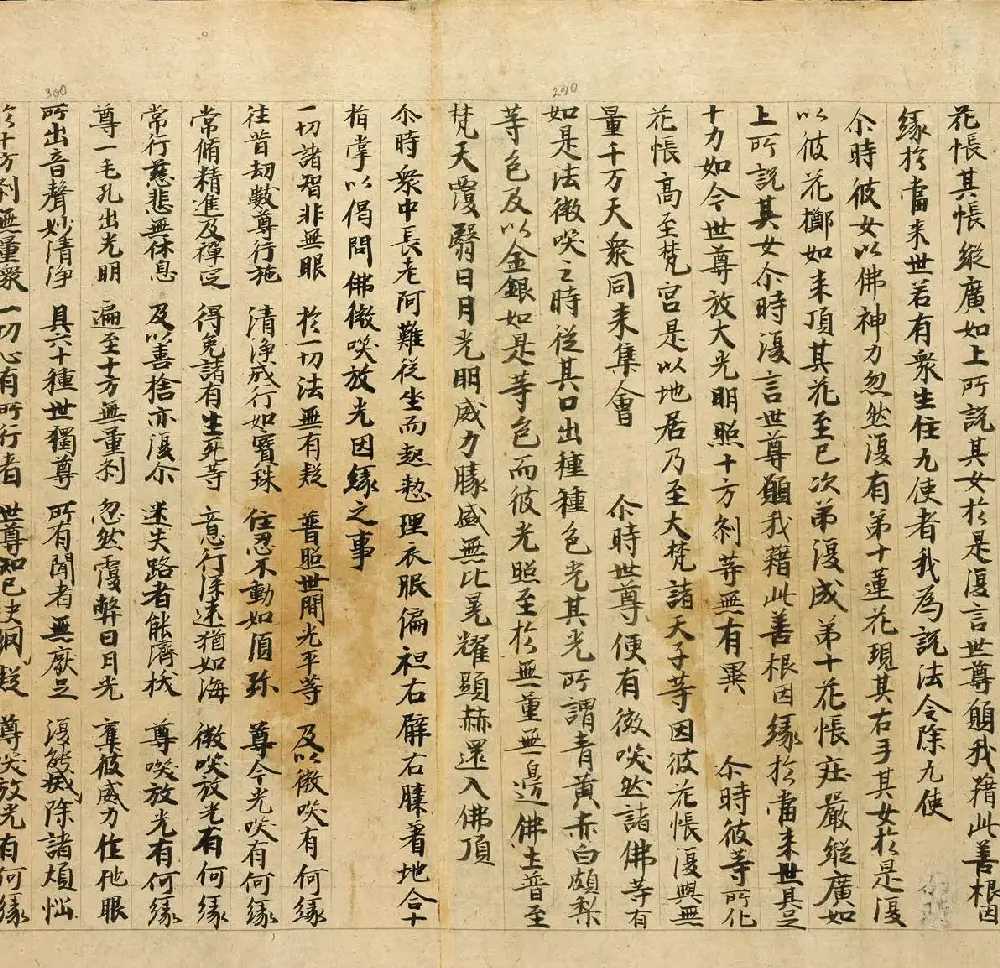 花帳其帳縱廣如上所說其女於是復言世尊願我藉此善根因
緣於當來世若有衆生住九使者我為說法令除九使
尒時彼女以佛神力忽然復有弟十蓮花現其右手其女於是復
以彼花擲如來頂其花至已次弟復成弟十花帳莊嚴縱廣如
上所說其女尒時復言世尊願我藉此善根因緣於當來世具足
十力如今世尊放大光明照十方剎等無有異 尒時彼等所化
花帳高至梵宮是以地居乃至大梵諸天子等因彼花帳復與無
量千万天衆同來集會 尒時世尊便有微咲然諸佛等有
如是法微咲之時從其口出種種色光其光所謂青黃赤白頗梨
等色及以金銀如是等色而彼光照至於無量無邊佛土普至
梵天覆翳日月光明威力勝盛無比晃耀顯赫還入佛頂
尒時衆中長老阿難從坐而起愸理衣服偏袒右臂右膝著地合十
指掌以偈問佛微咲放光因緣之事
一切諸智非無眼 於一切法無有疑 普照世間光平等 及以微咲有何緣
往昔劫數尊行施 清淨戒行如寶珠 住忍不動如須弥 尊今光咲有何緣
常脩精進及禪定 得免諸有生死等 意行深遠猶如海 微咲放光有何緣
常行慈悲無休息 及以善捨亦復尒 迷失路者能濟拔 尊咲放光有何緣
尊一毛孔出光明 遍至十方無量剎 忽然覆弊日月光 棄彼威力住他眼
所出音聲妙清淨 具六十種世獨尊 所有聞者無猒足 復能滅除諸煩惱
於十方剎無量衆 一切心有所行者 世尊知已決網疑 尊咲放光有何緣
300
290